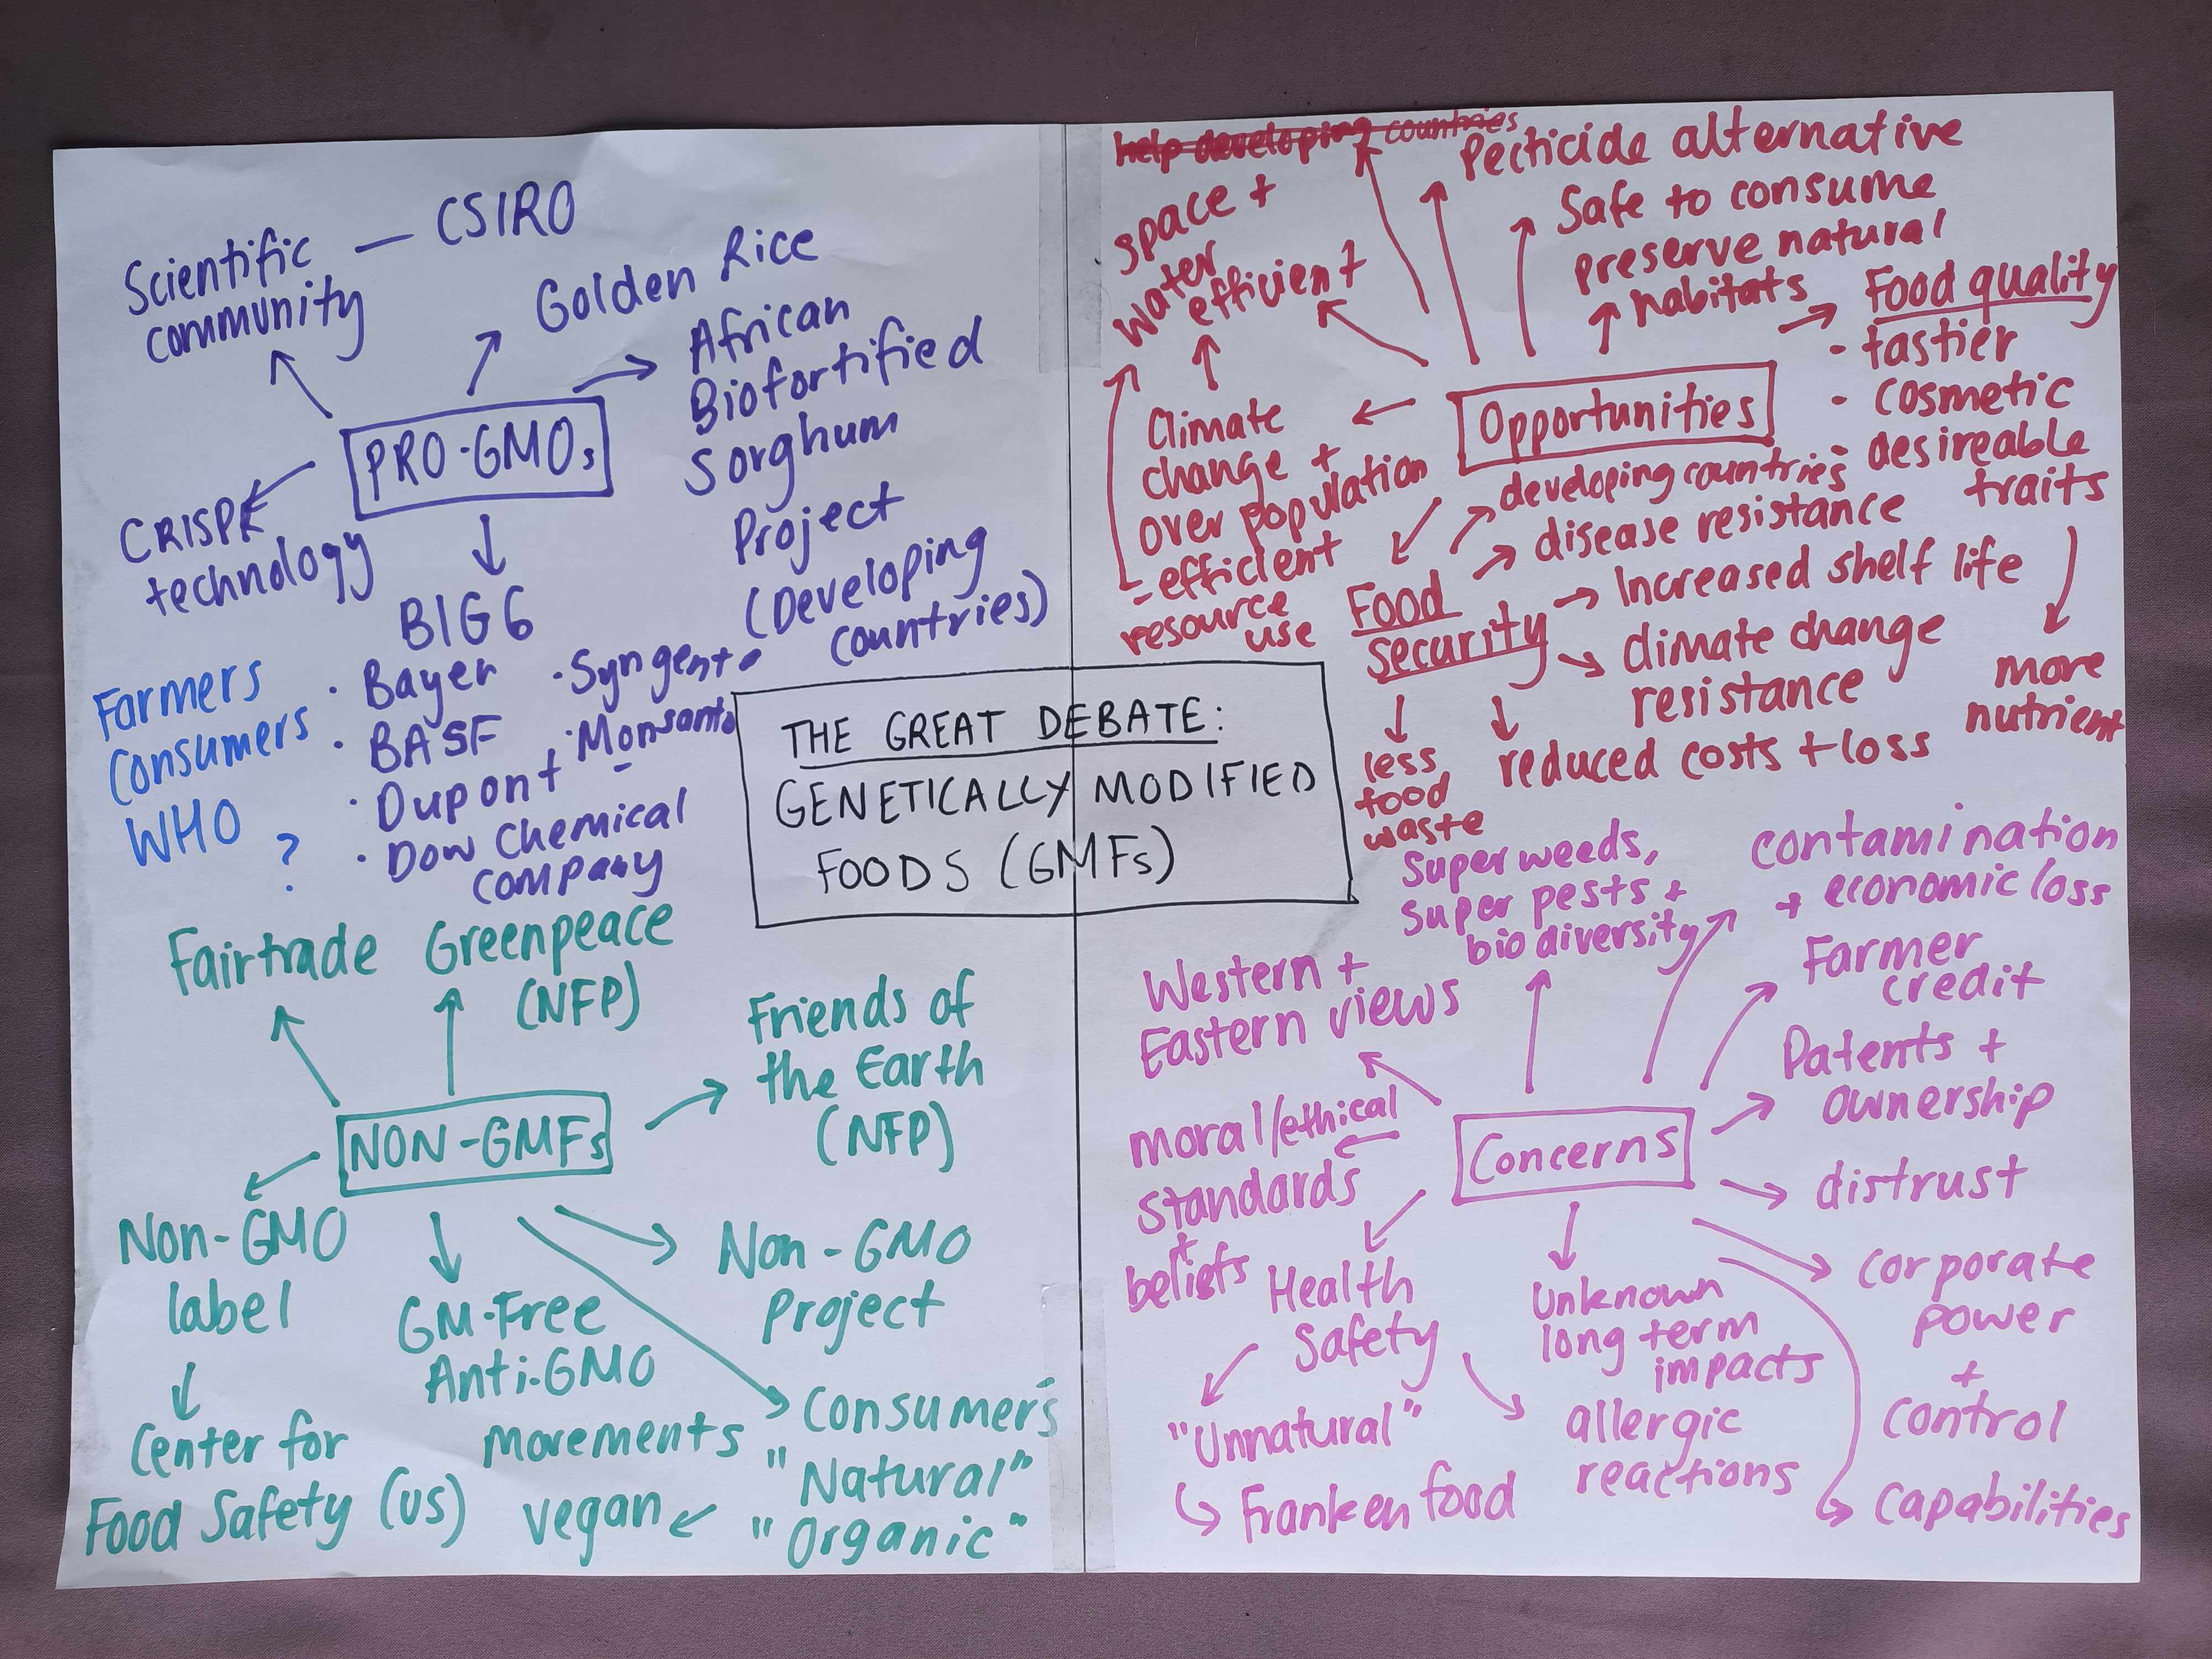 Scientific
community
CSIRO
Golden Rice
African
Biofortified
Sorghum
Project
(Developing
countries)
PRO-GMOs
CRISPR
technology
BIG6
· Bayer
· BASF
· Dupont
· Dow Chemical
company
· Syngenta
· Monsanto
Farmers
Consumers
WHO
?
THE GREAT DEBATE:
GENETICALLY MODIFIED
FOODS (GMFs)
Fairtrade
Greenpeace
(NFP)
Friends of
the Earth
(NFP)
NON-GMFs
Non-GMO
label
Center for
Food Safety (US)
GM-Free
Anti-GMO
movements
Non-GMO
Project
Consumers
"Natural"
"Organic"
vegan
help developing countries
Pecticide alternative
Safe to consume
preserve natural
habitats
space +
water
efficient
Food quality
- tastier
- cosmetic
- desireable
traits
more
nutrient
Opportunities
Climate
change +
over population
- efficient
resource
use
Food
security
developing countries
disease resistance
Increased shelf life
climate change
resistance
reduced costs + loss
less
food
waste
Super weeds,
super pests +
bio diversity
contamination
+ economic loss
Farmer
credit
Patents +
ownership
distrust
corporate
power
+
control
capabilities
Concerns
Western +
Eastern views
moral/ethical
standards
+
beliefs
Health
Safety
"Unnatural"
Franken food
allergic
reactions
Unknown
long term
impacts